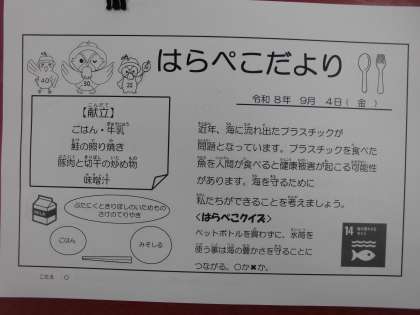 はらぺこだより
令和8年 9月 4日(金)
40 50 20
【献立】
ごはん・牛乳
鮭の照り焼き
豚肉と切干の炒め物
味噌汁
近年、海に流れ出たプラスチックが
問題となっています。プラスチックを食べた
魚を人間が食べると健康被害が起こる可能性
があります。海を守るために
私たちができることを考えましょう。
<はらぺこクイズ>
ペットボトルを買わずに、水筒を
使う事は海の豊かさを守ることに
つながる。○か✖か。
ぶたにくときりぼしのいためもの
さけのてりやき
ごはん
みそしる
14
こたえ ○